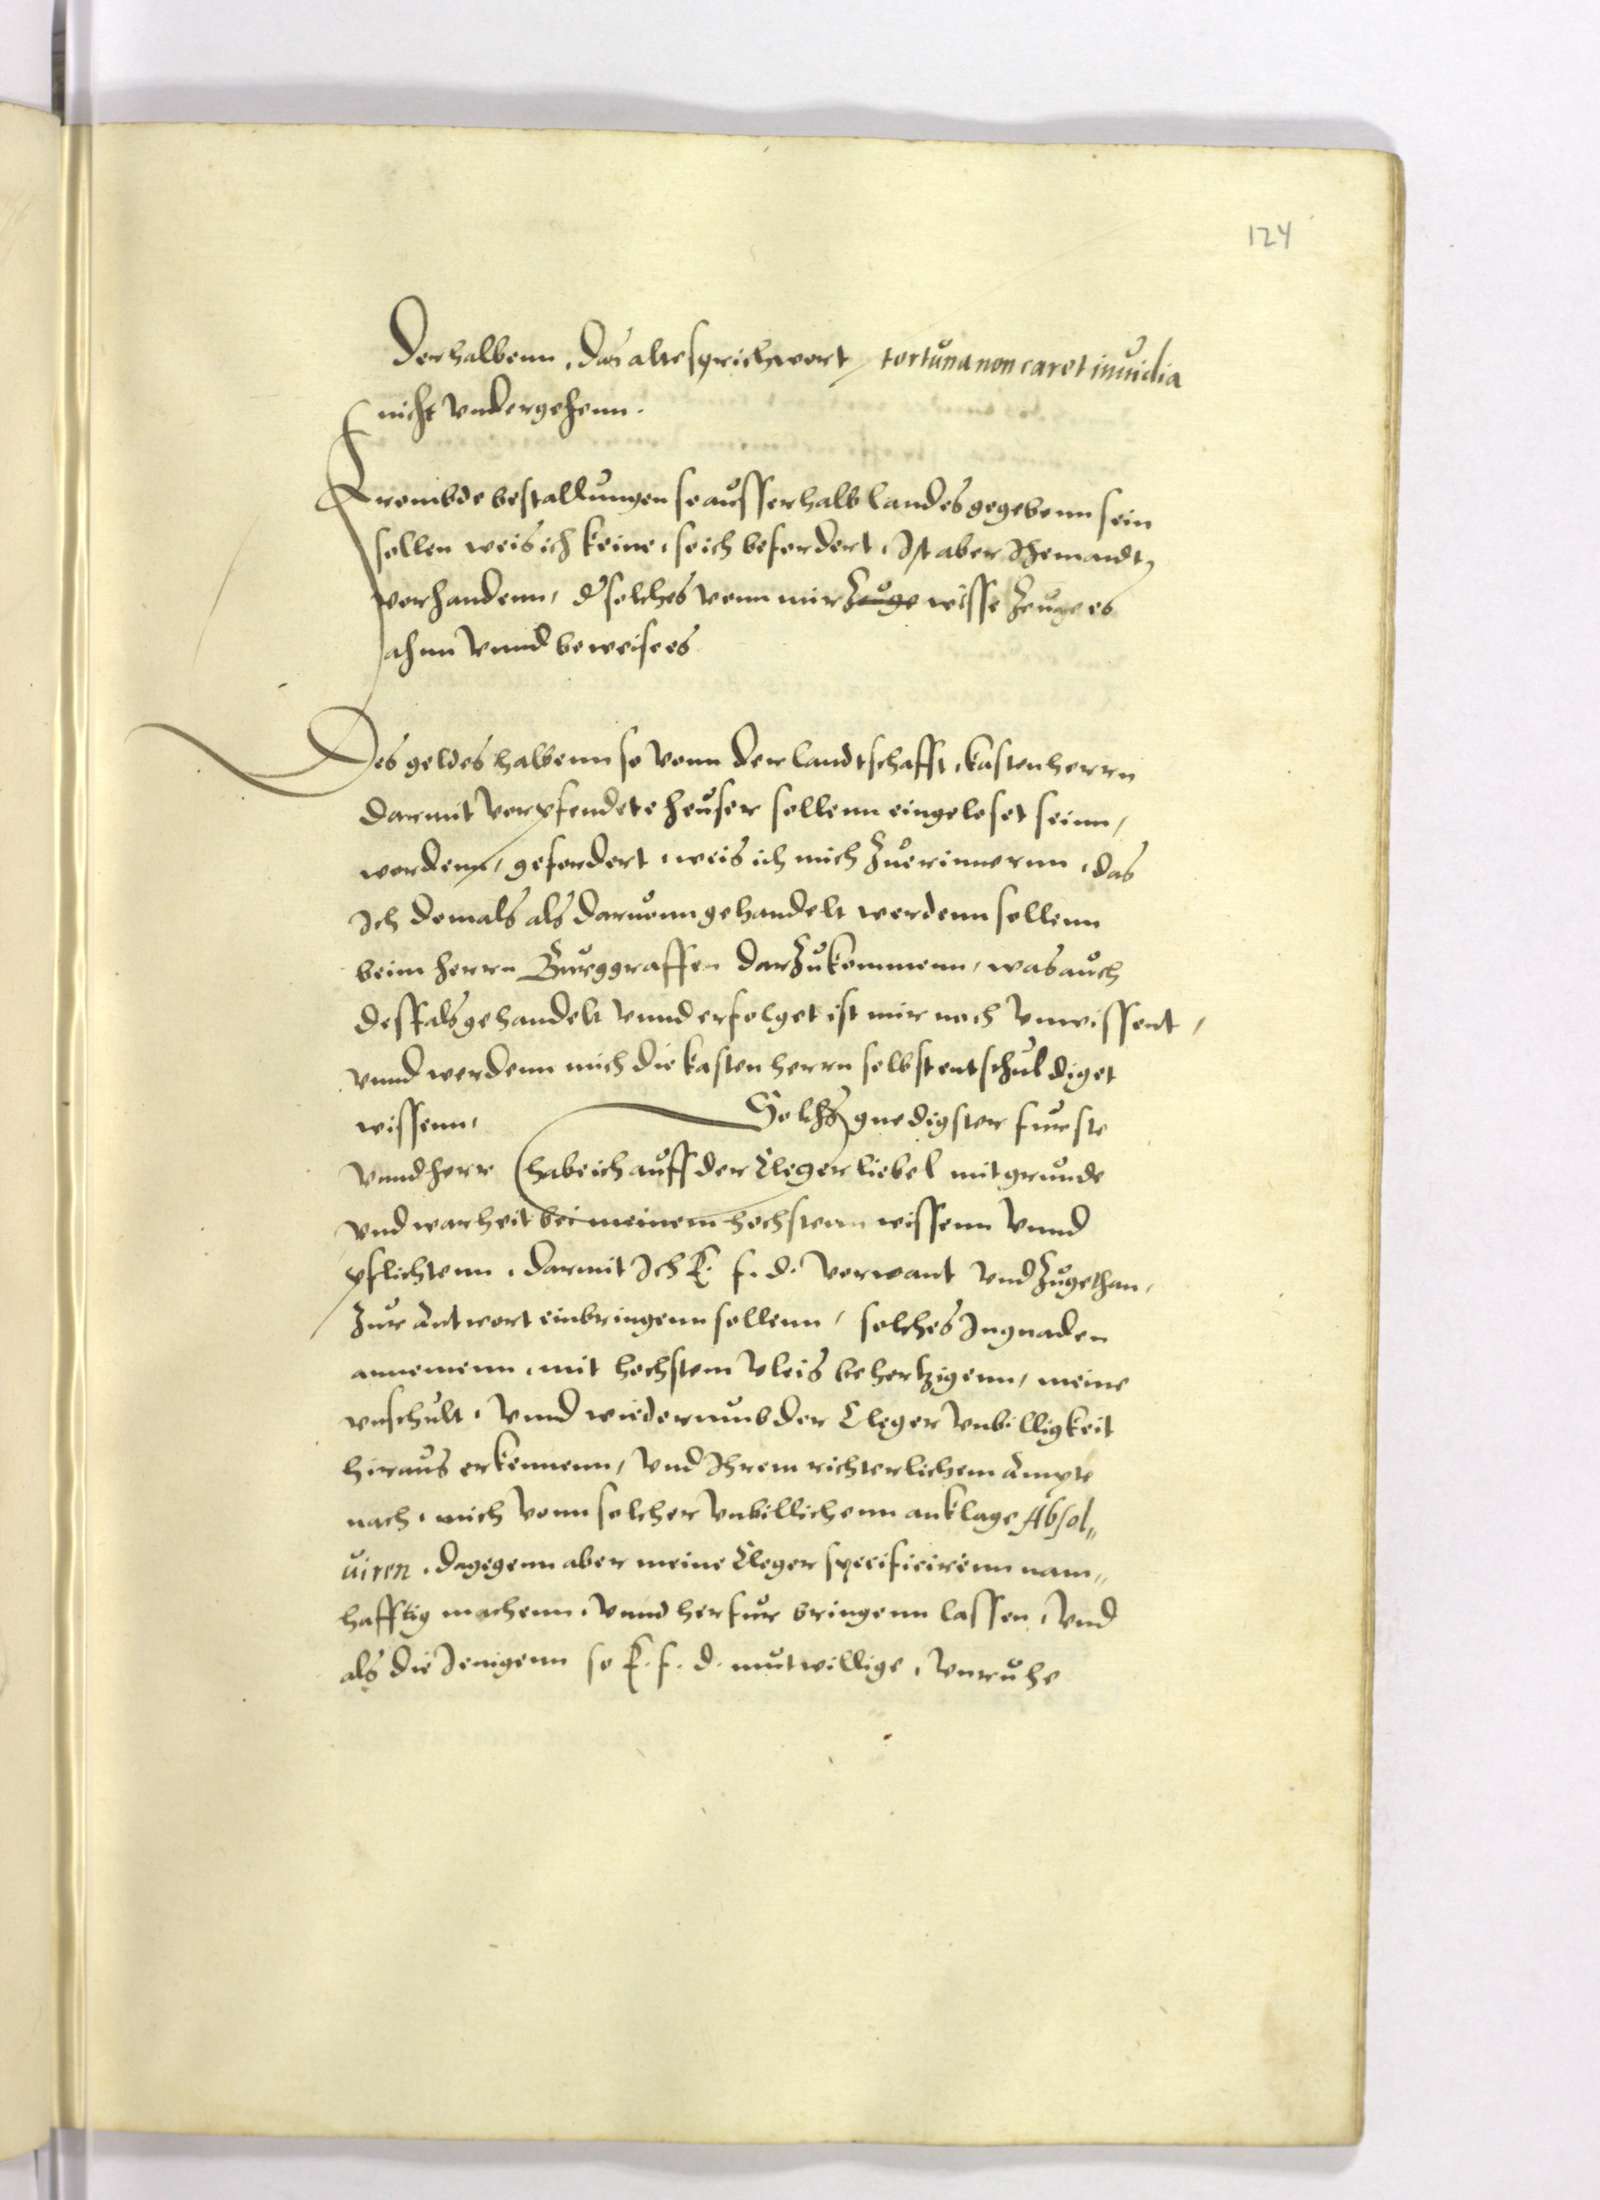 124
Derhalbenn, das alte sprichwort, fortuna non caret inuidia
nicht vndergehenn.
Frombde bestallungen so ausserhalb landes gegebenn sein
sollen weis ich keine, so ich befordert, Ist aber Jhemandt,
vorhandenn, d solches vonn mir Zeuge wisse Zeuge es
ahnn vnnd beweise es
Des geldes halbenn so vonn der landtschafft kastenherrn
darmit vorpfendete heuser sollenn eingeloset seinn,
wordenn, gefordert, weis ich mich Zuerinnernn, das
Ich domals als daruonn gehandelt werdenn sollenn
beim herrn Burggraffen darZukommenn, was auch
desfals gehandelt vnnd erfolget ist mir noch vnwissent,
vnnd werdenn mich die kastenherrn selbst entschuldiget
wissenn, Solchs gnedigster furste
vnnd herr habe ich auff der Cleger liebel mit grunde
vnd warheit bei meinem hochstenn wissenn vnnd
pflichtenn, darmit Ich E. f. d. vorwant vnd Zugethan,
Zur Antwort einbringenn sollenn, solches In gnaden
annemenn, mit hochstem vleis behertzigenn, meine
vnschult, vnnd wiederumb der Cleger vnbilligkeit
hiraus erkennenn, vnd Ihrem richterlichem Ampte
nach, mich vonn solcher vnbillichenn anklage Absol„
uiren, dagegenn aber meine Cleger specificirenn nam„
hafftig machenn, vnnd herfur bringenn lassen, vnd
als die Jenigenn so E. f. d. mutwillige, vnruhe